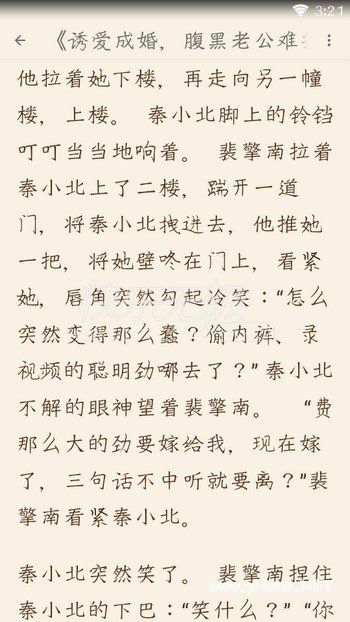 3:21
《诱爱成婚，腹黑老公难
他拉着她下楼，再走向另一幢
楼，上楼。 秦小北脚上的铃铛
叮叮当当地响着。 裴擎南拉着
秦小北上了二楼，踹开一道
门，将秦小北拽进去，他推她
一把，将她壁咚在门上，看紧
她，唇角突然勾起冷笑：“怎么
突然变得那么蠢？偷内裤、录
视频的聪明劲哪去了？”秦小北
不解的眼神望着裴擎南。 “费
那么大的劲要嫁给我，现在嫁
了，三句话不中听就要离？”裴
擎南看紧秦小北。
秦小北突然笑了。 裴擎南捏住
秦小北的下巴：“笑什么？” “你